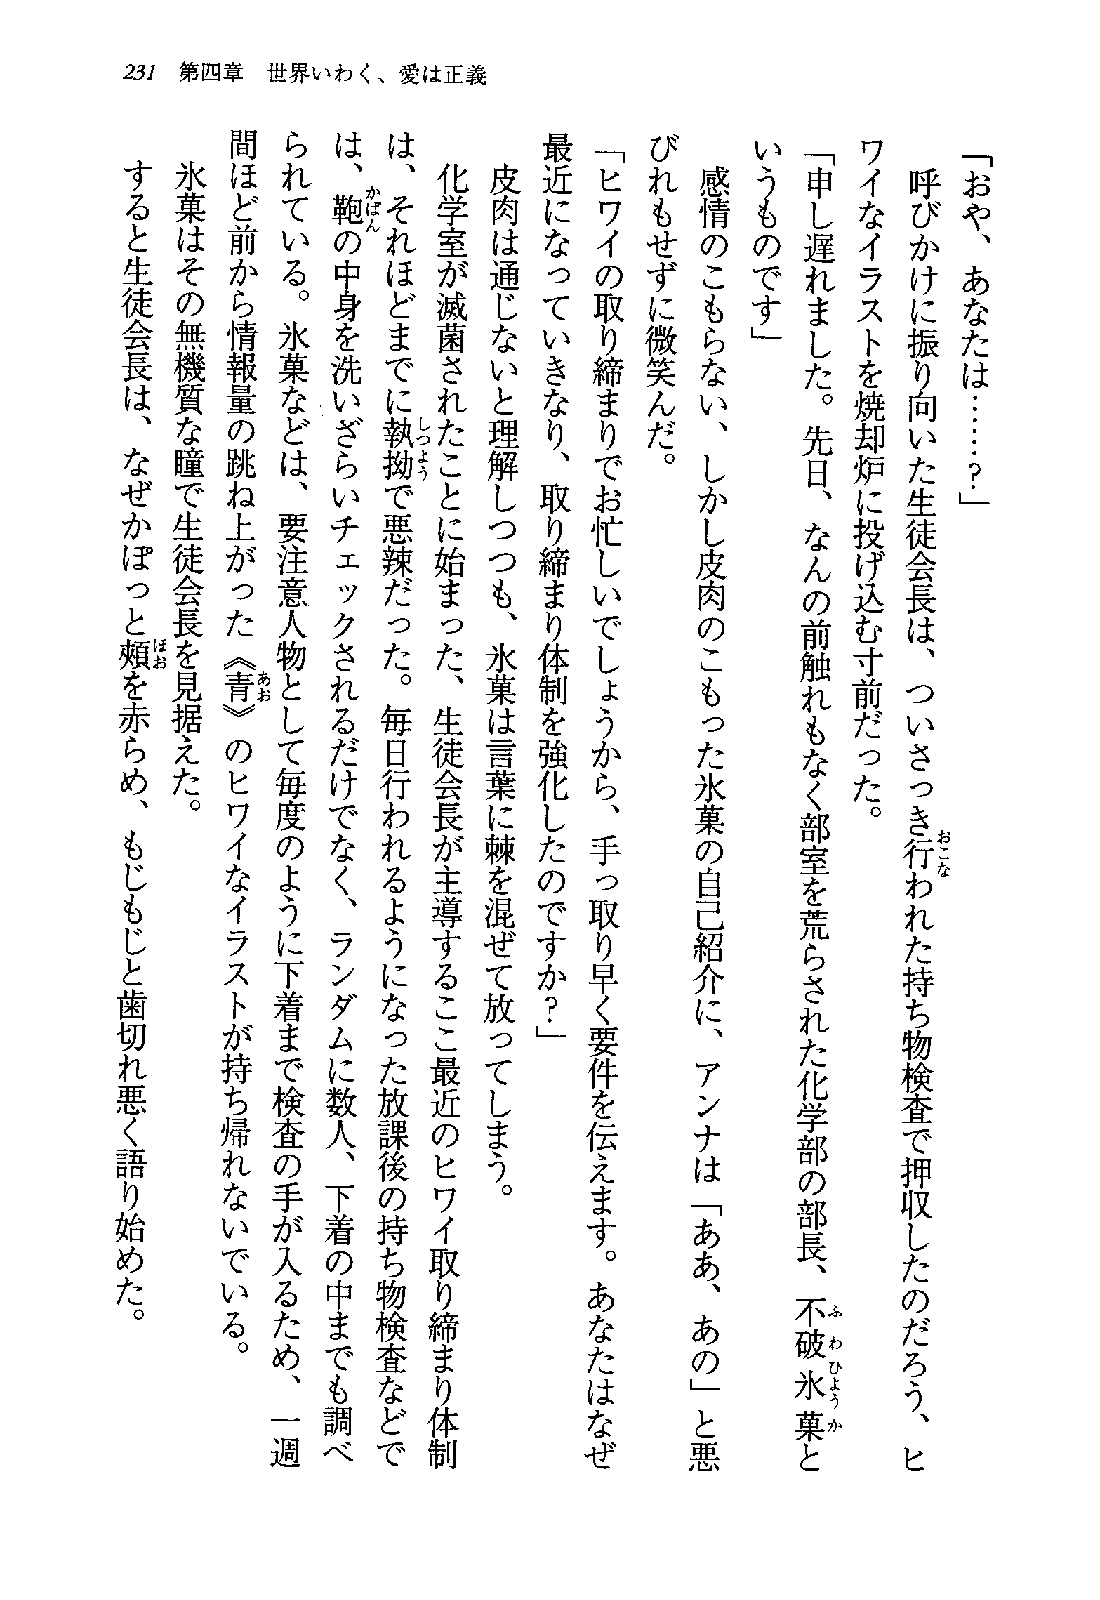 231　第四章　世界いわく、愛は正義
「おや、あなたは……？」
呼びかけに振り向いた生徒会長は、ついさっき行われた持ち物検査で押収したのだろう、ヒ
ワイなイラストを焼却炉に投げ込む寸前だった。
「申し遅れました。先日、なんの前触れもなく部室を荒らされた化学部の部長、不破氷菓と
いうものです」
感情のこもらない、しかし皮肉のこもった氷菓の自己紹介に、アンナは「ああ、あの」と悪
びれもせずに微笑んだ。
「ヒワイの取り締まりでお忙しいでしょうから、手っ取り早く要件を伝えます。あなたはなぜ
最近になっていきなり、取り締まり体制を強化したのですか？」
皮肉は通じないと理解しつつも、氷菓は言葉に棘を混ぜて放ってしまう。
化学室が滅菌されたことに始まった、生徒会長が主導するここ最近のヒワイ取り締まり体制
は、それほどまでに執拗で悪辣だった。毎日行われるようになった放課後の持ち物検査などで
は、鞄の中身を洗いざらいチェックされるだけでなく、ランダムに数人、下着の中までも調べ
られている。氷菓などは、要注意人物として毎度のように下着まで検査の手が入るため、一週
間ほど前から情報量の跳ね上がった《青》のヒワイなイラストが持ち帰れないでいる。
氷菓はその無機質な瞳で生徒会長を見据えた。
すると生徒会長は、なぜかぽっと頰を赤らめ、もじもじと歯切れ悪く語り始めた。